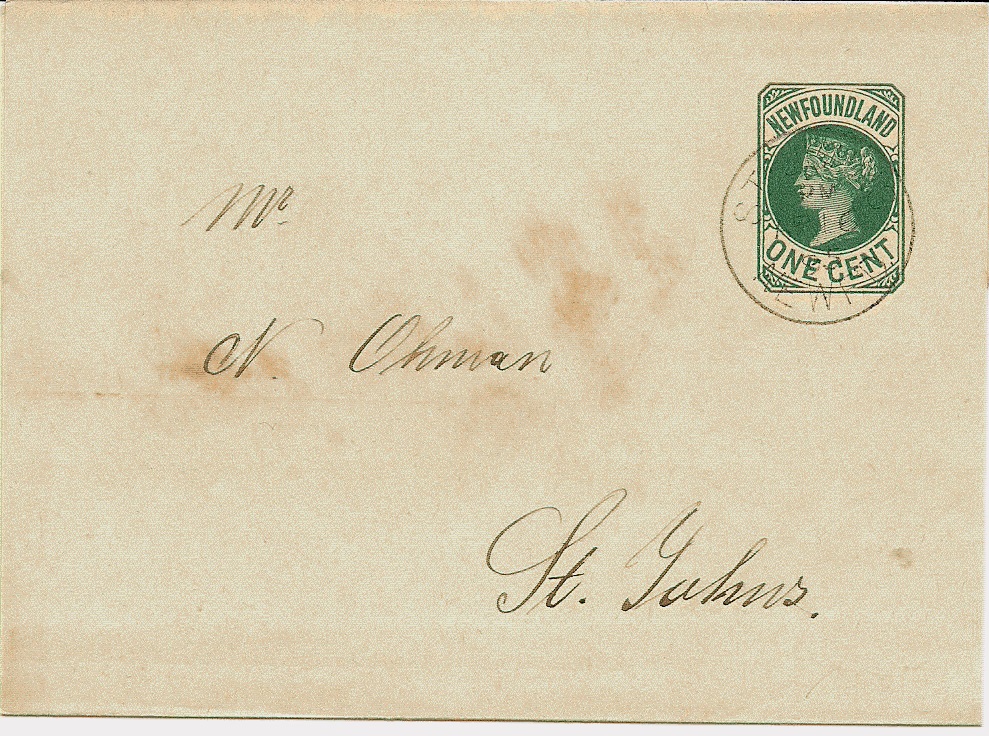 NEWFOUNDLAND
ONE CENT
Mr
N. Ohman
St. Johns.